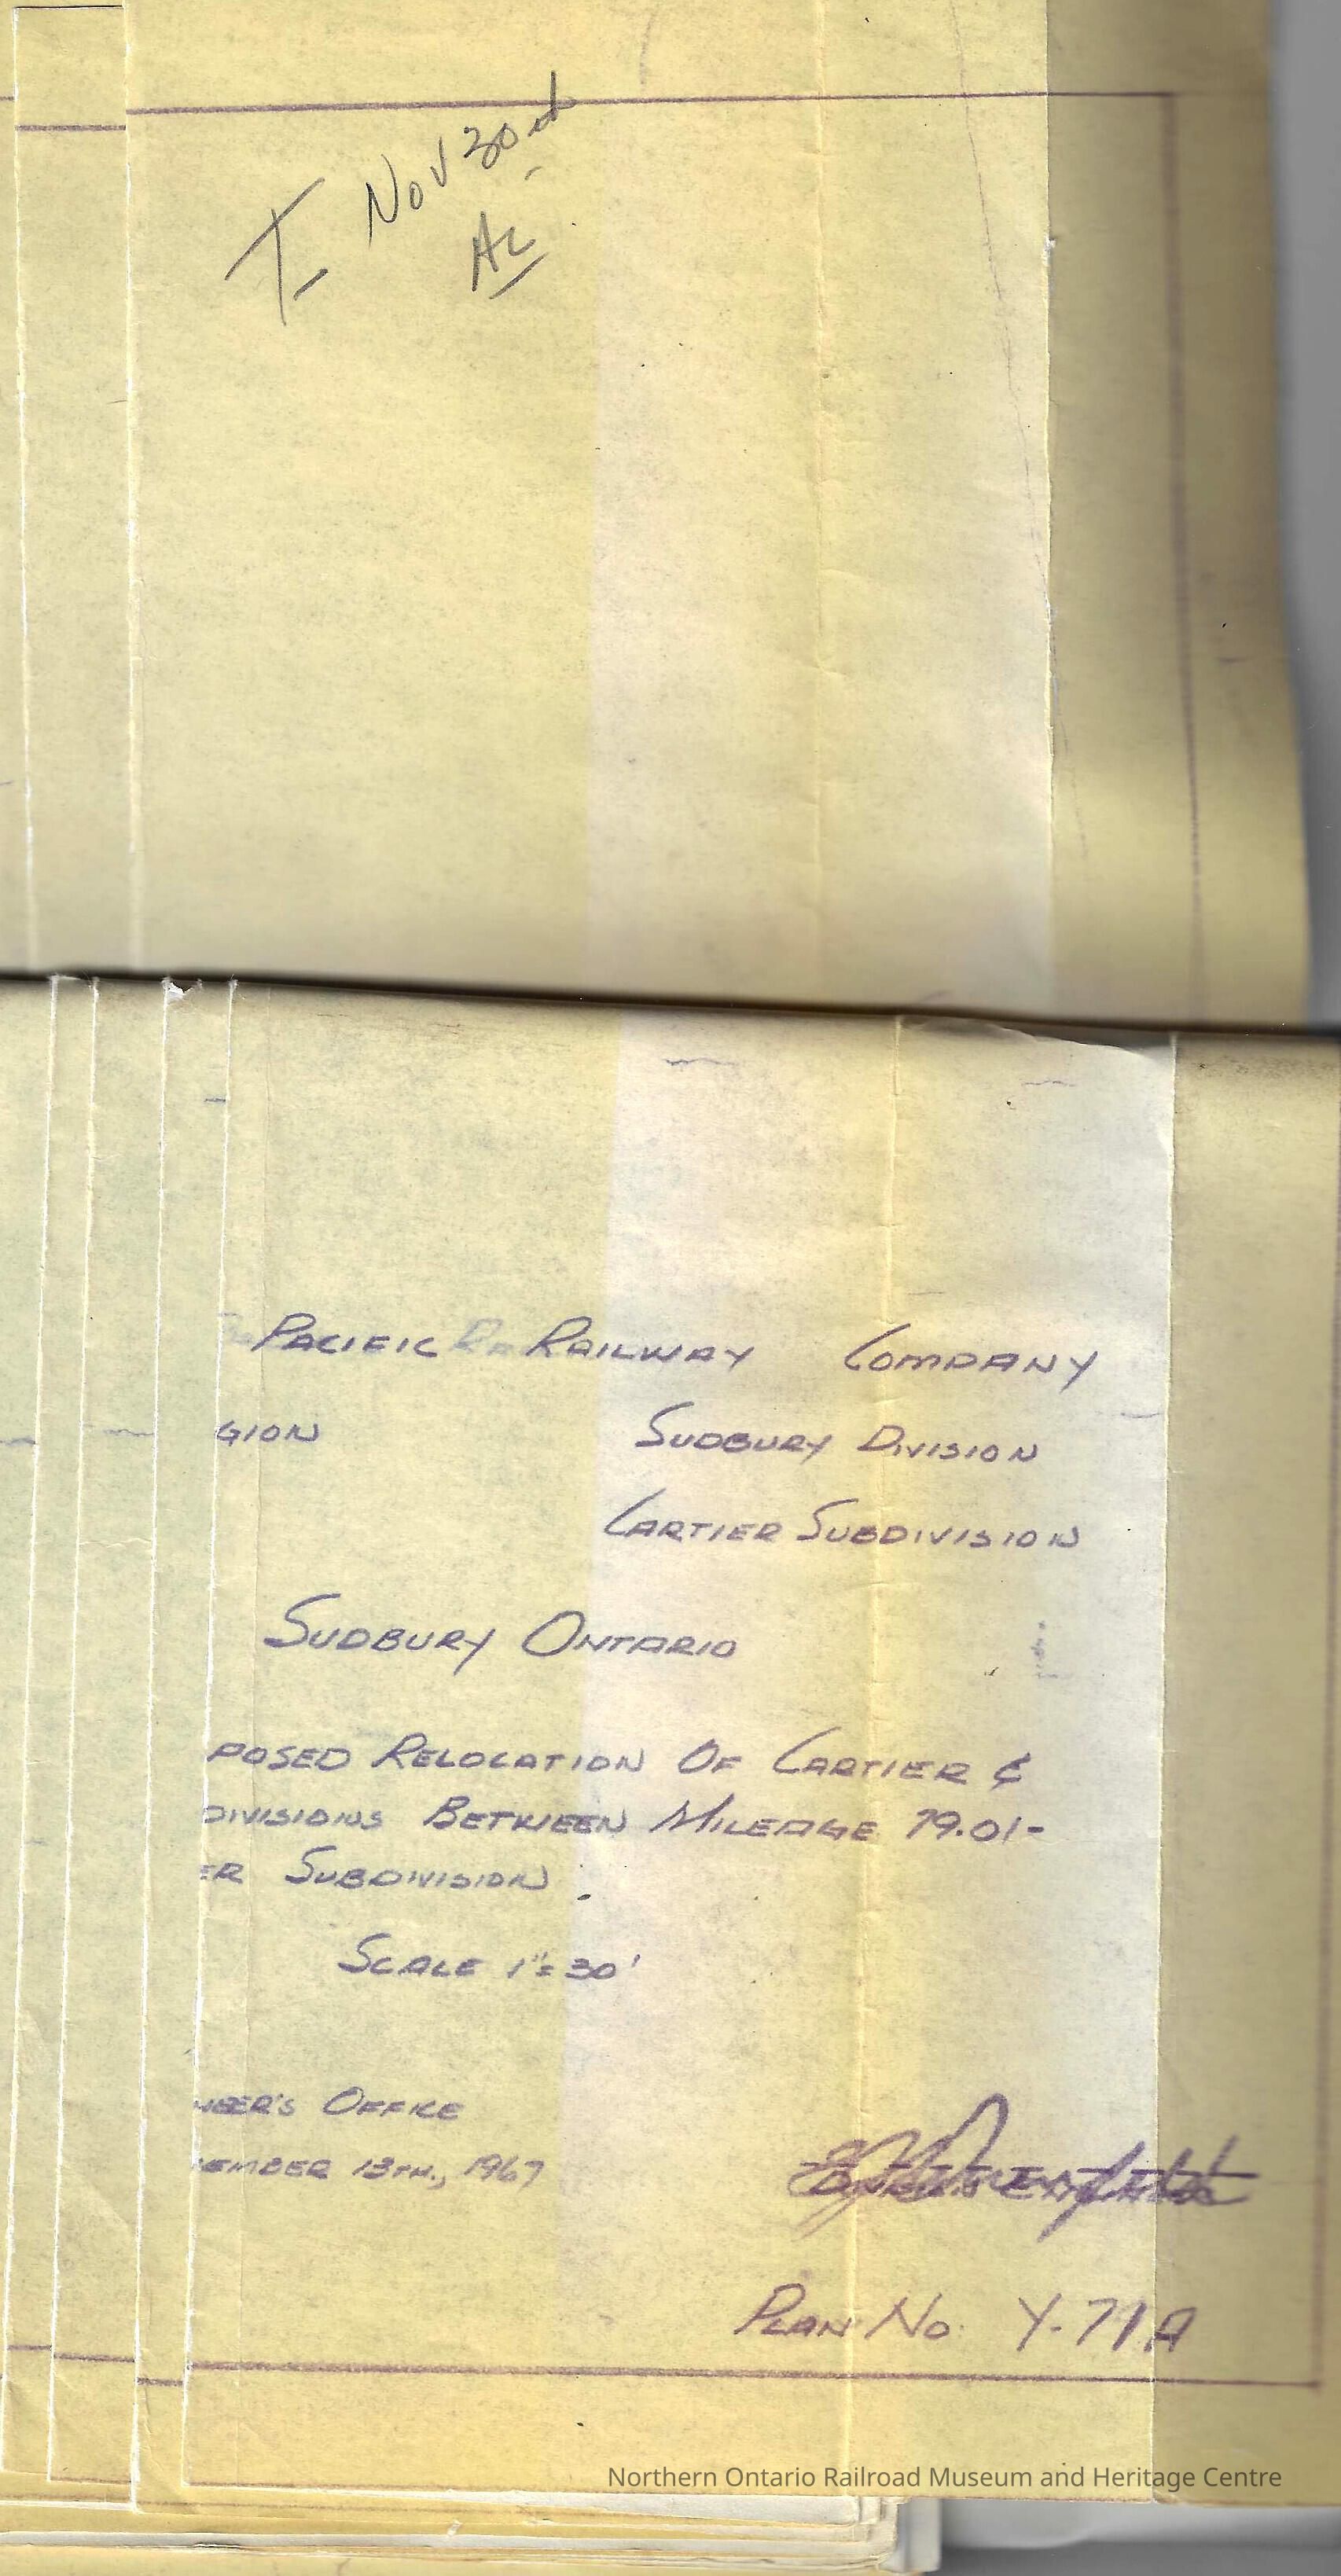 Nov 30
PACIFIC RAILWAY COMPANY
GION SUDBURY DIVISION
CARTIER SUBDIVISION
SUDBURY ONTARIO
POSED RELOCATION OF CARTIER &
DIVISIONS BETWEEN MILEAGE 79.01-
ER SUBDIVISION
SCALE 1"=30'
NEER'S OFFICE
EMBER 13TH., 1967
PLAN No. Y-71A
Northern Ontario Railroad Museum and Heritage Centre